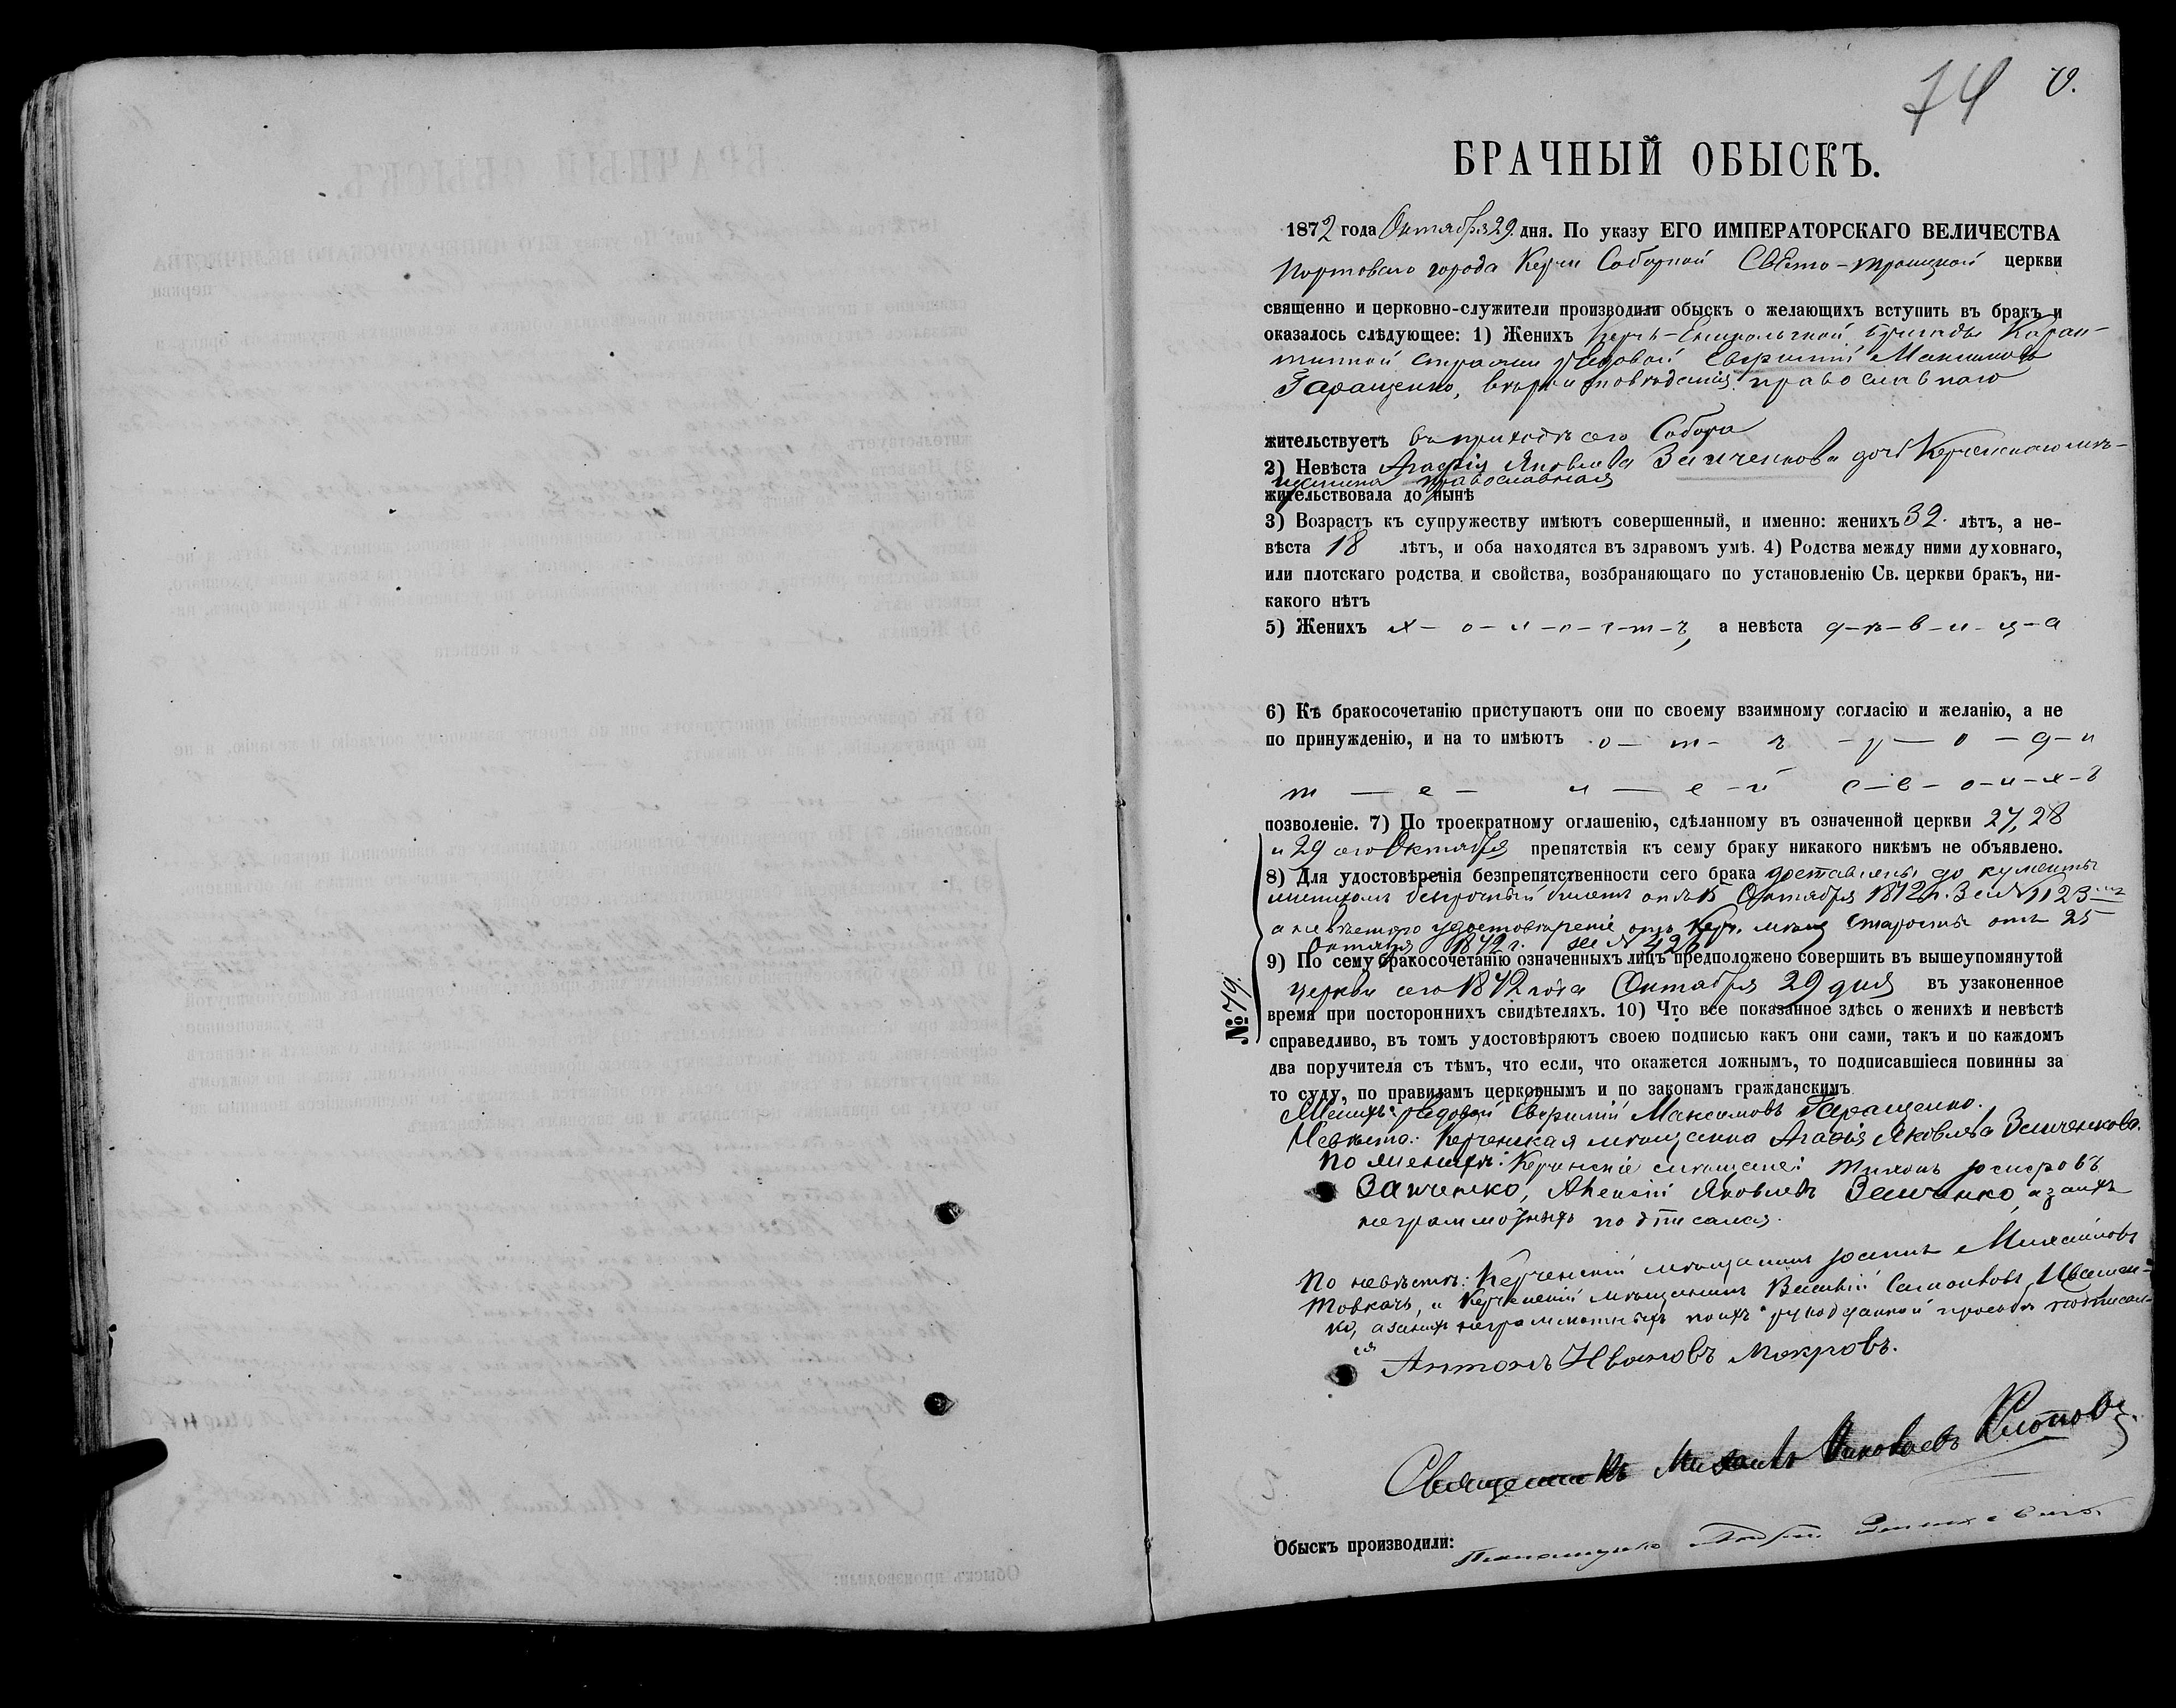 74
БРАЧНЫЙ ОБЫСКЪ.
1872 года Октября 29 дня. По указу ЕГО ИМПЕРАТОРСКАГО ВЕЛИЧЕСТВА
Портоваго города Керчи Соборной Свято-троицкой церкви
священно и церковно-служители производили обыскъ о желающихъ вступить въ бракъ и
оказалось слѣдующее: 1) Женихъ Керчь-Еникольской бригады Каран-
тинной стражи рядовой Максимовъ
Гаращенко, вѣроисповѣданія православнаго
жительствуетъ въ приходѣ сего Собора
2) Невѣста Агафія Яковлева Зинченкова дочь Керченскаго мѣ-
щанина православная
жительствовала до нынѣ
3) Возрастъ къ супружеству имѣютъ совершенный, и именно: женихъ 32. лѣтъ, а не-
вѣста 18 лѣтъ, и оба находятся въ здравомъ умѣ. 4) Родства между ними духовнаго,
или плотскаго родства и свойства, возбраняющаго по установленію Св. церкви бракъ, ни-
какого нѣтъ
5) Женихъ х-о-л-о-с-т-ъ, а невѣста д-ѣ-в-и-ц-а
6) Къ бракосочетанію приступаютъ они по своему взаимному согласію и желанію, а не
по принужденію, и на то имѣютъ о-т-ъ-р-о-д-и
т-е-л-е-й с-в-о-и-х-ъ
позволеніе. 7) По троекратному оглашенію, сдѣланному въ означенной церкви 27, 28
и 29 сего Октября препятствія къ сему браку никакого никѣмъ не объявлено.
8) Для удостовѣренія безпрепятственности сего брака доставлены документы
женихомъ безсрочный билетъ отъ 15 Октября 1872 г. за № 1123
а невѣстою удостовѣреніе отъ Керч. мѣщ. старосты отъ 25
Октября 1872 г. за № 426
9) По сему бракосочетанію означенныхъ лицъ предположено совершить въ вышеупомянутой
церкви сего 1872 года Октября 29 дня въ узаконенное
время при постороннихъ свидѣтеляхъ. 10) Что все показанное здѣсь о женихѣ и невѣстѣ
справедливо, въ томъ удостовѣряютъ своею подписью какъ они сами, такъ и по каждомъ
два поручителя съ тѣмъ, что если, что окажется ложнымъ, то подписавшіеся повинны за
то суду, по правиламъ церковнымъ и по законамъ гражданскимъ
№ 79.
Женихъ: рядовой Максимовъ Гаращенко.
Невѣста: Керченская мѣщанка Агафія Яковлева Зинченкова.
По женихѣ: Керченскіе мѣщане: Тихонъ
Зинченко, Алексій Яковлевъ Зинченко, а за ихъ
неграмотныхъ подписался.
По невѣстѣ: Керченскій мѣщанинъ Михайловъ
Товкачъ, и Керченскій мѣщанинъ Василій Иващен-
ко, а за нихъ неграмотныхъ по ихъ рукоданной просьбѣ подписал-
ся
Антонъ Ивановъ Мокровъ.
Священникъ Михаилъ Клоповъ
Обыскъ производили: